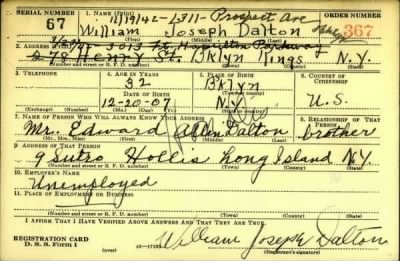 SERIAL NUMBER 1. NAME (Print) ORDER NUMBER
11/19/42-1311- Prospect Ave
67 William Joseph Dalton 367
(First) (Middle) (Last)
2. ADDRESS (Print)
3013 Ft. Hamilton Parkway
278 Henry St. Bklyn Kings N.Y.
(Number and street or R. F. D. number) (Town) (County) (State)
3. TELEPHONE 4. AGE IN YEARS 5. PLACE OF BIRTH 6. COUNTRY OF CITIZENSHIP
32 Bklyn
DATE OF BIRTH (Town or county)
12-20-07 N.Y. U.S.
(Exchange) (Number) (Mo.) (Day) (Yr.) (State or country)
7. NAME OF PERSON WHO WILL ALWAYS KNOW YOUR ADDRESS 8. RELATIONSHIP OF THAT PERSON
Mr. Edward Allen Dalton brother
(Mr., Mrs., Miss) (First) (Middle) (Last)
9. ADDRESS OF THAT PERSON
9 Sutro Hollis Long Island N.Y.
(Number and street or R. F. D. number) (Town) (County) (State)
10. EMPLOYER'S NAME
Unemployed
11. PLACE OF EMPLOYMENT OR BUSINESS
(Number and street or R. F. D. number) (Town) (County) (State)
I AFFIRM THAT I HAVE VERIFIED ABOVE ANSWERS AND THAT THEY ARE TRUE.
REGISTRATION CARD
D. S. S. Form 1 William Joseph Dalton
(Registrant's signature)